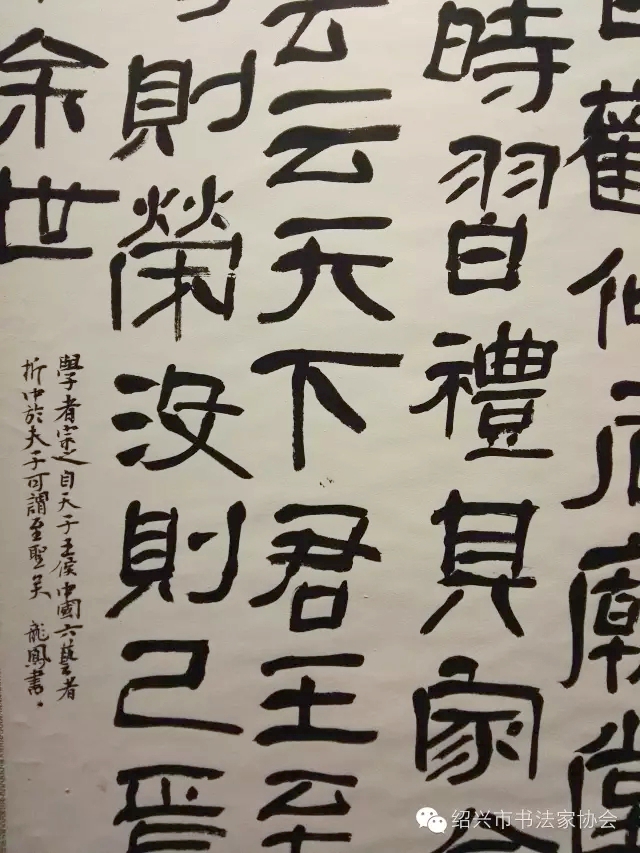 觀仲尼廟堂
時習禮其家余
去云天下君王至
則榮沒則已焉
余世
學者宗之自天子王侯中國六藝者
折中於夫子可謂至聖矣 龍鳳書
绍兴市书法家协会